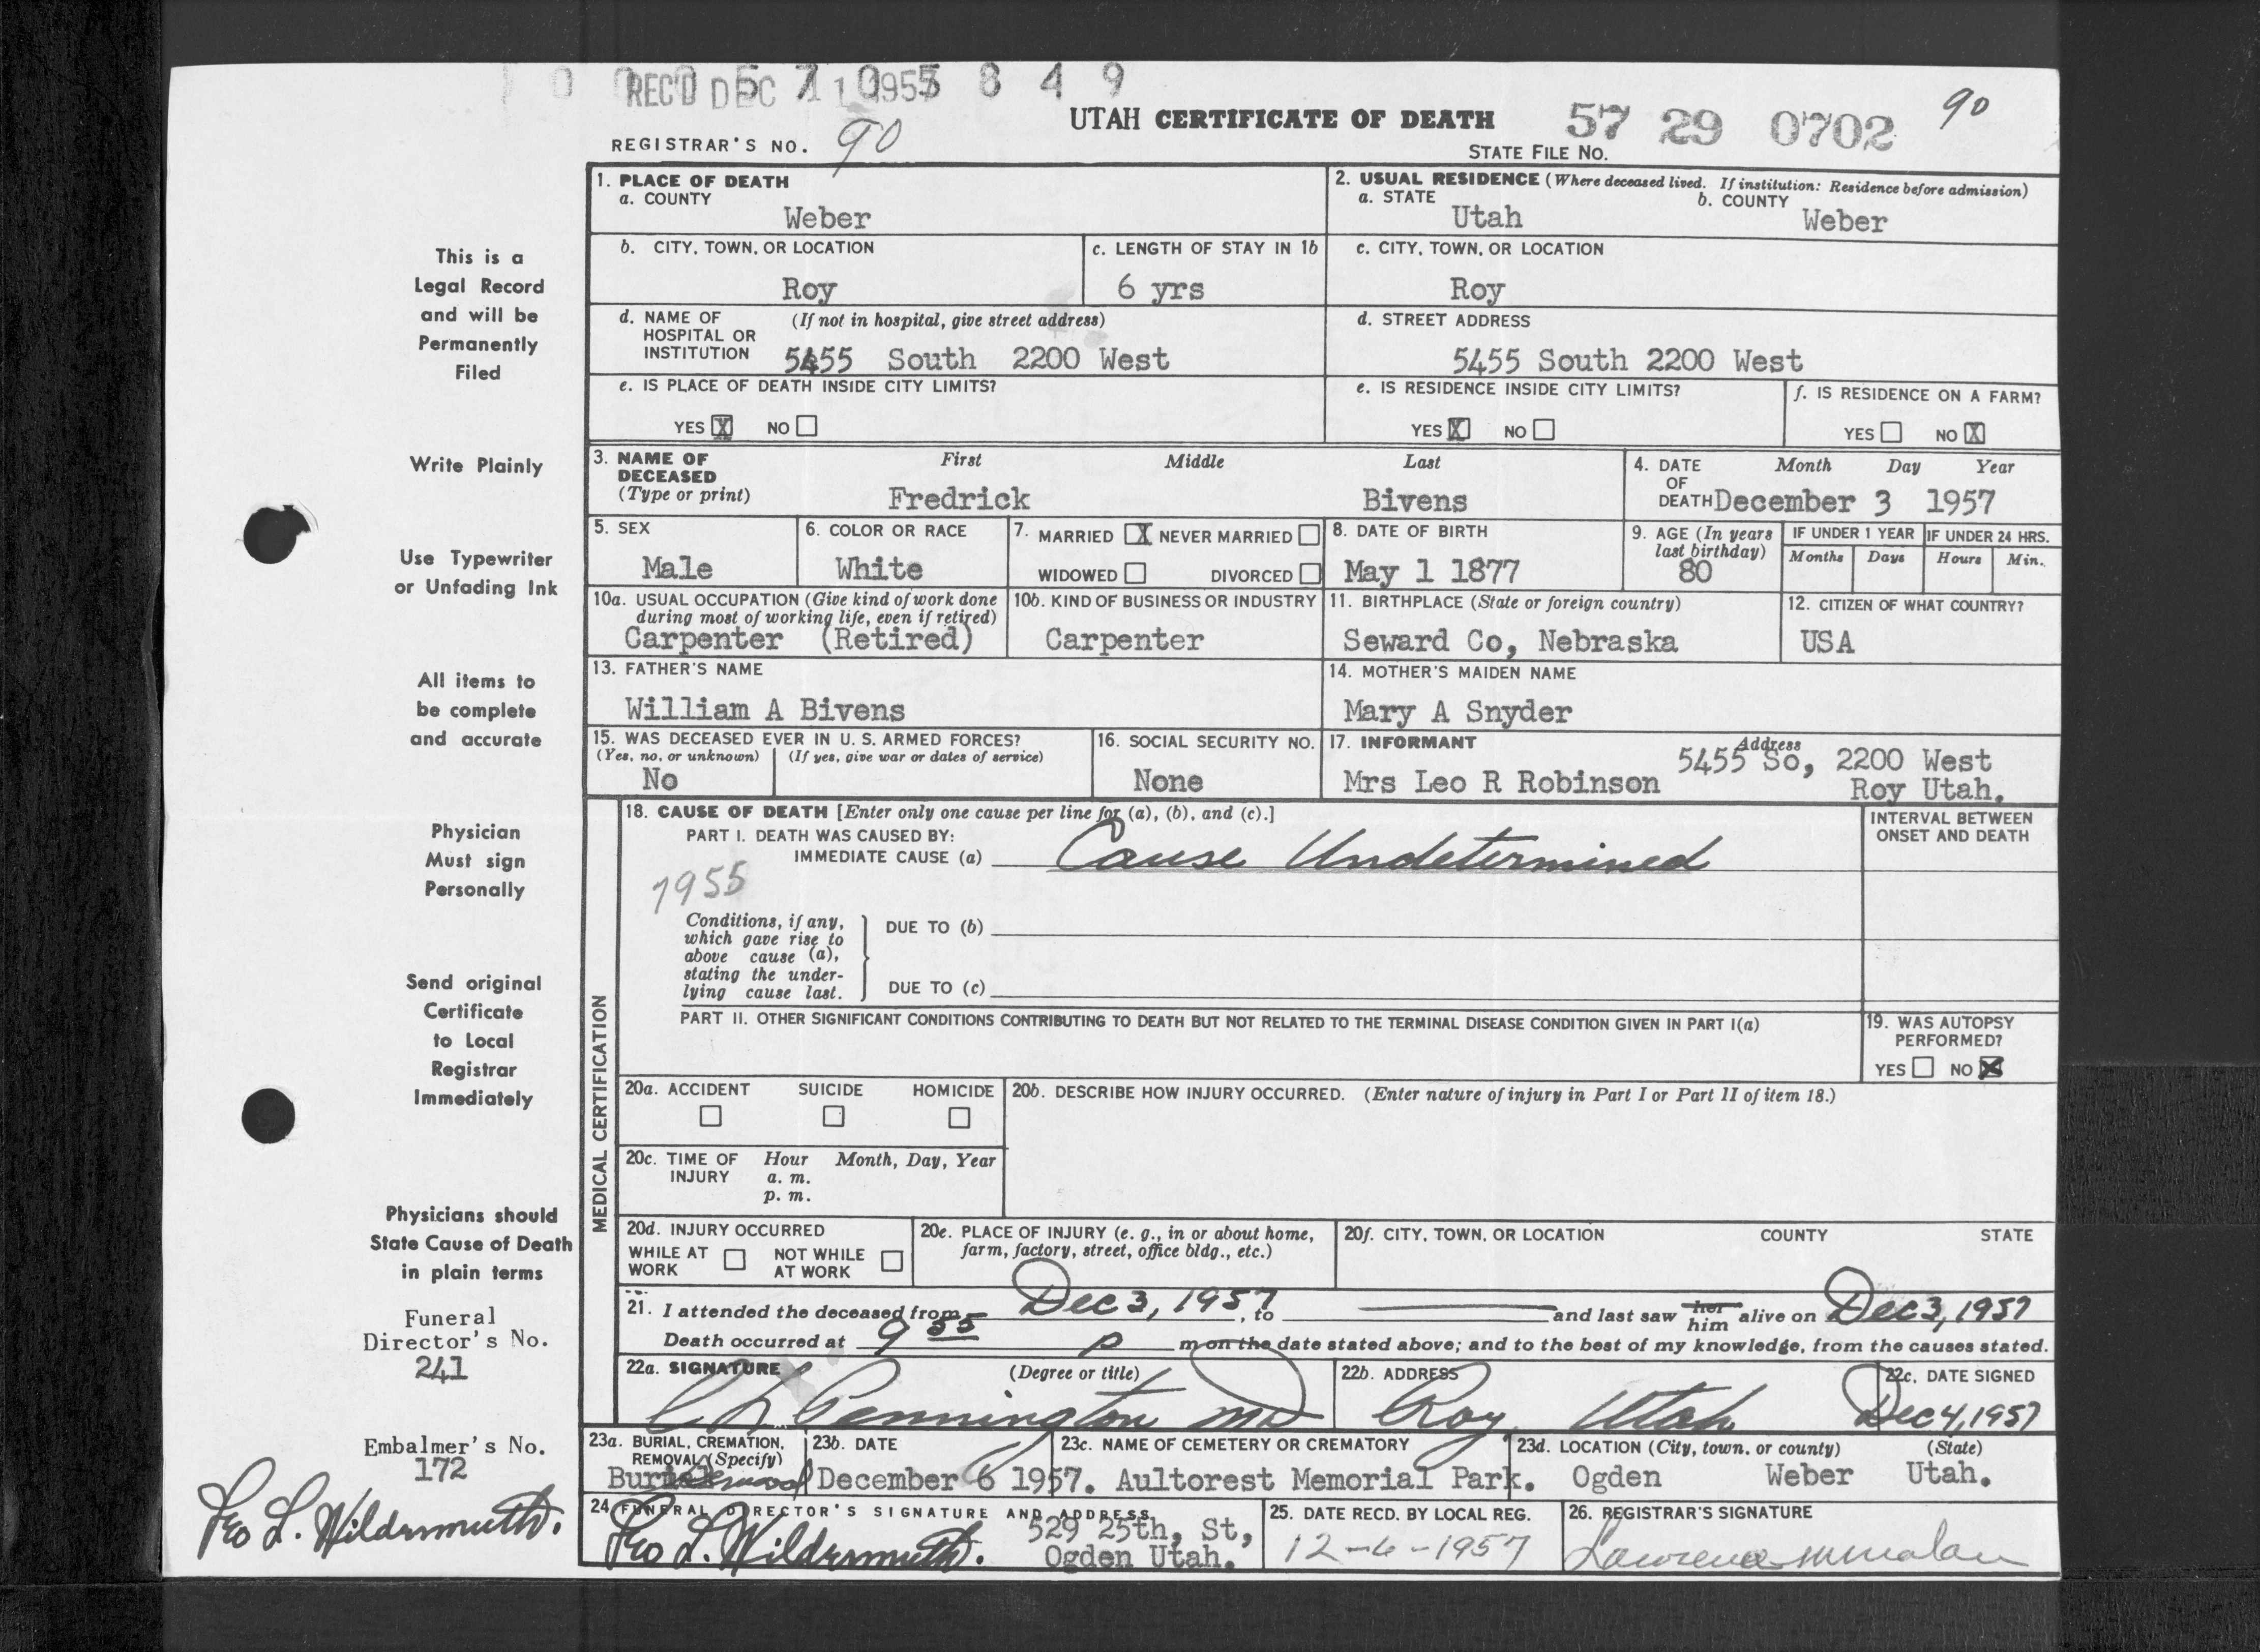 REC'D DEC 11 1957
UTAH CERTIFICATE OF DEATH 57 29 0702 90
REGISTRAR'S NO. 90
STATE FILE NO.
1. PLACE OF DEATH
a. COUNTY
Weber
2. USUAL RESIDENCE (Where deceased lived. If institution: Residence before admission)
a. STATE Utah b. COUNTY Weber
b. CITY, TOWN, OR LOCATION
Roy
c. LENGTH OF STAY IN 1b
6 yrs
c. CITY, TOWN, OR LOCATION
Roy
d. NAME OF HOSPITAL OR INSTITUTION (If not in hospital, give street address)
5455 South 2200 West
d. STREET ADDRESS
5455 South 2200 West
e. IS PLACE OF DEATH INSIDE CITY LIMITS?
YES X NO
e. IS RESIDENCE INSIDE CITY LIMITS?
YES X NO
f. IS RESIDENCE ON A FARM?
YES NO X
3. NAME OF DECEASED (Type or print)
First Middle Last
Fredrick Bivens
4. DATE OF DEATH Month Day Year
December 3 1957
5. SEX
Male
6. COLOR OR RACE
White
7. MARRIED X NEVER MARRIED
WIDOWED DIVORCED
8. DATE OF BIRTH
May 1 1877
9. AGE (In years last birthday)
80
IF UNDER 1 YEAR
Months Days
IF UNDER 24 HRS.
Hours Min.
10a. USUAL OCCUPATION (Give kind of work done during most of working life, even if retired)
Carpenter (Retired)
10b. KIND OF BUSINESS OR INDUSTRY
Carpenter
11. BIRTHPLACE (State or foreign country)
Seward Co, Nebraska
12. CITIZEN OF WHAT COUNTRY?
USA
13. FATHER'S NAME
William A Bivens
14. MOTHER'S MAIDEN NAME
Mary A Snyder
15. WAS DECEASED EVER IN U. S. ARMED FORCES?
(Yes, no, or unknown) (If yes, give war or dates of service)
No
16. SOCIAL SECURITY NO.
None
17. INFORMANT Address
Mrs Leo R Robinson 5455 So, 2200 West
Roy Utah.
MEDICAL CERTIFICATION
18. CAUSE OF DEATH [Enter only one cause per line for (a), (b), and (c).]
PART I. DEATH WAS CAUSED BY:
IMMEDIATE CAUSE (a) Cause Undetermined
7955
INTERVAL BETWEEN ONSET AND DEATH
Conditions, if any, which gave rise to above cause (a), stating the underlying cause last.
DUE TO (b)
DUE TO (c)
PART II. OTHER SIGNIFICANT CONDITIONS CONTRIBUTING TO DEATH BUT NOT RELATED TO THE TERMINAL DISEASE CONDITION GIVEN IN PART I(a)
19. WAS AUTOPSY PERFORMED?
YES NO X
20a. ACCIDENT SUICIDE HOMICIDE
20b. DESCRIBE HOW INJURY OCCURRED. (Enter nature of injury in Part I or Part II of item 18.)
20c. TIME OF INJURY Hour Month, Day, Year
a. m.
p. m.
20d. INJURY OCCURRED
WHILE AT WORK NOT WHILE AT WORK
20e. PLACE OF INJURY (e. g., in or about home, farm, factory, street, office bldg., etc.)
20f. CITY, TOWN, OR LOCATION COUNTY STATE
21. I attended the deceased from Dec 3, 1957, to and last saw her him alive on Dec 3, 1957
Death occurred at 9 55 p m on the date stated above; and to the best of my knowledge, from the causes stated.
22a. SIGNATURE (Degree or title)
Pennington MD
22b. ADDRESS
Roy Utah
22c. DATE SIGNED
Dec 4, 1957
23a. BURIAL, CREMATION, REMOVAL (Specify)
Burial
23b. DATE
December 6 1957.
23c. NAME OF CEMETERY OR CREMATORY
Aultorest Memorial Park.
23d. LOCATION (City, town, or county) (State)
Ogden Weber Utah.
24 FUNERAL DIRECTOR'S SIGNATURE AND ADDRESS
Leo L. Wildermuth. 529 25th, St,
Ogden Utah.
25. DATE RECD. BY LOCAL REG.
12-6-1957
26. REGISTRAR'S SIGNATURE
Lawrence M Malan
This is a
Legal Record
and will be
Permanently
Filed
Write Plainly
Use Typewriter
or Unfading Ink
All items to
be complete
and accurate
Physician
Must sign
Personally
Send original
Certificate
to Local
Registrar
Immediately
Physicians should
State Cause of Death
in plain terms
Funeral
Director's No.
241
Embalmer's No.
172
Leo L. Wildermuth.